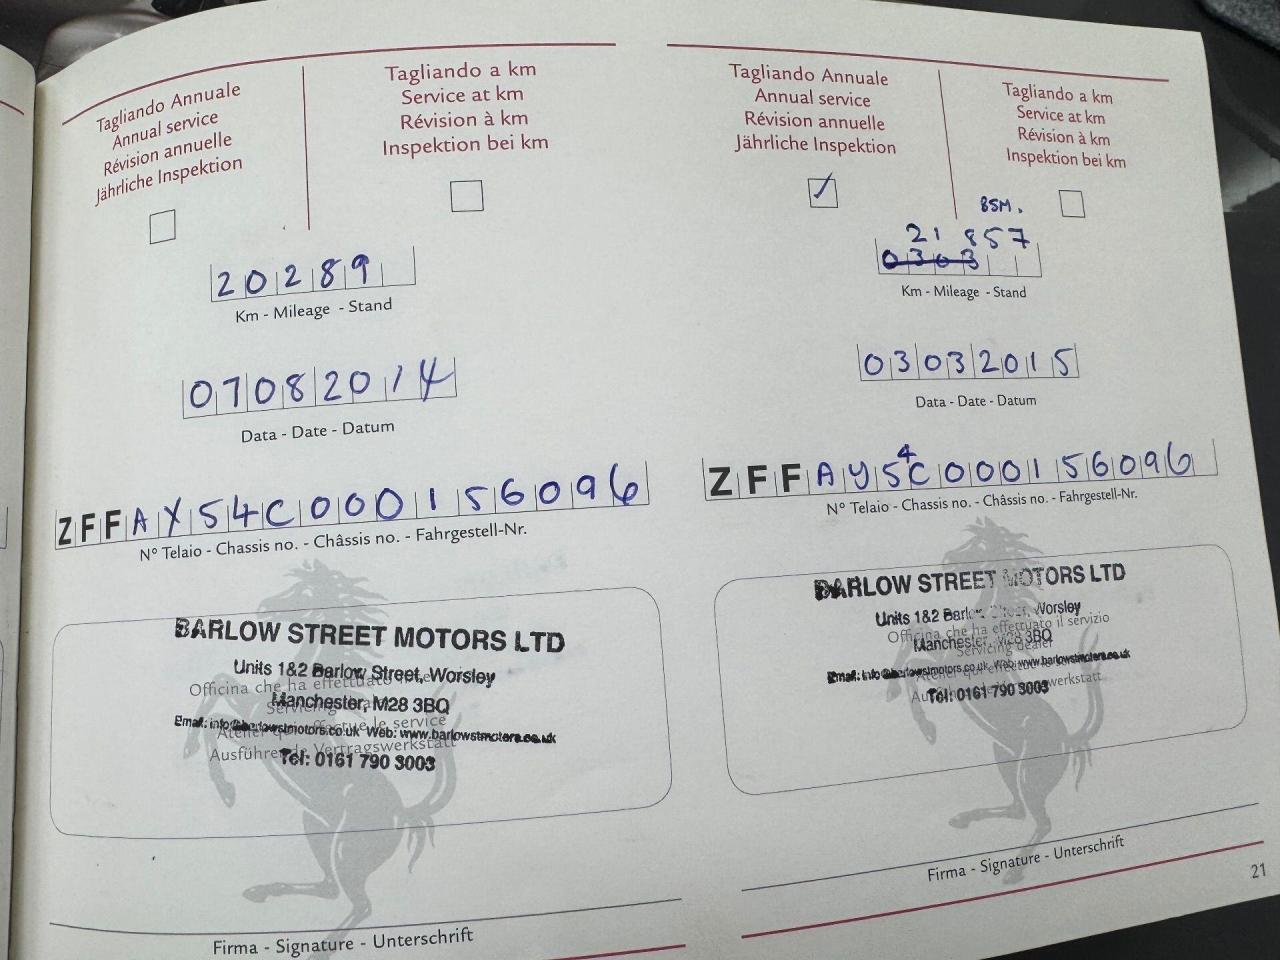 Tagliando Annuale
Annual service
Révision annuelle
Jährliche Inspektion
Tagliando a km
Service at km
Révision à km
Inspektion bei km
20289
Km - Mileage - Stand
07082014
Data - Date - Datum
ZFFAY54C000156096
N° Telaio - Chassis no. - Châssis no. - Fahrgestell-Nr.
BARLOW STREET MOTORS LTD
Units 1&2 Barlow Street, Worsley
Officina che ha effettuato
Manchester, M28 3BQ
Email: info@barlowstmotors.co.uk Web: www.barlowstmotors.co.uk
le service
Ausführende Vertragswerkstatt
Tel: 0161 790 3003
Firma - Signature - Unterschrift
Tagliando Annuale
Annual service
Révision annuelle
Jährliche Inspektion
Tagliando a km
Service at km
Révision à km
Inspektion bei km
BSM.
21 857
0303
Km - Mileage - Stand
03032015
Data - Date - Datum
ZFFAY54C000156096
N° Telaio - Chassis no. - Châssis no. - Fahrgestell-Nr.
BARLOW STREET MOTORS LTD
Units 1&2 Barlow Street, Worsley
Officina che ha effettuato il servizio
Manchester, M28 3BQ
Servicing dealer
Email: info@barlowstmotors.co.uk Web: www.barlowstmotors.co.uk
Tel: 0161 790 3003
Firma - Signature - Unterschrift
21